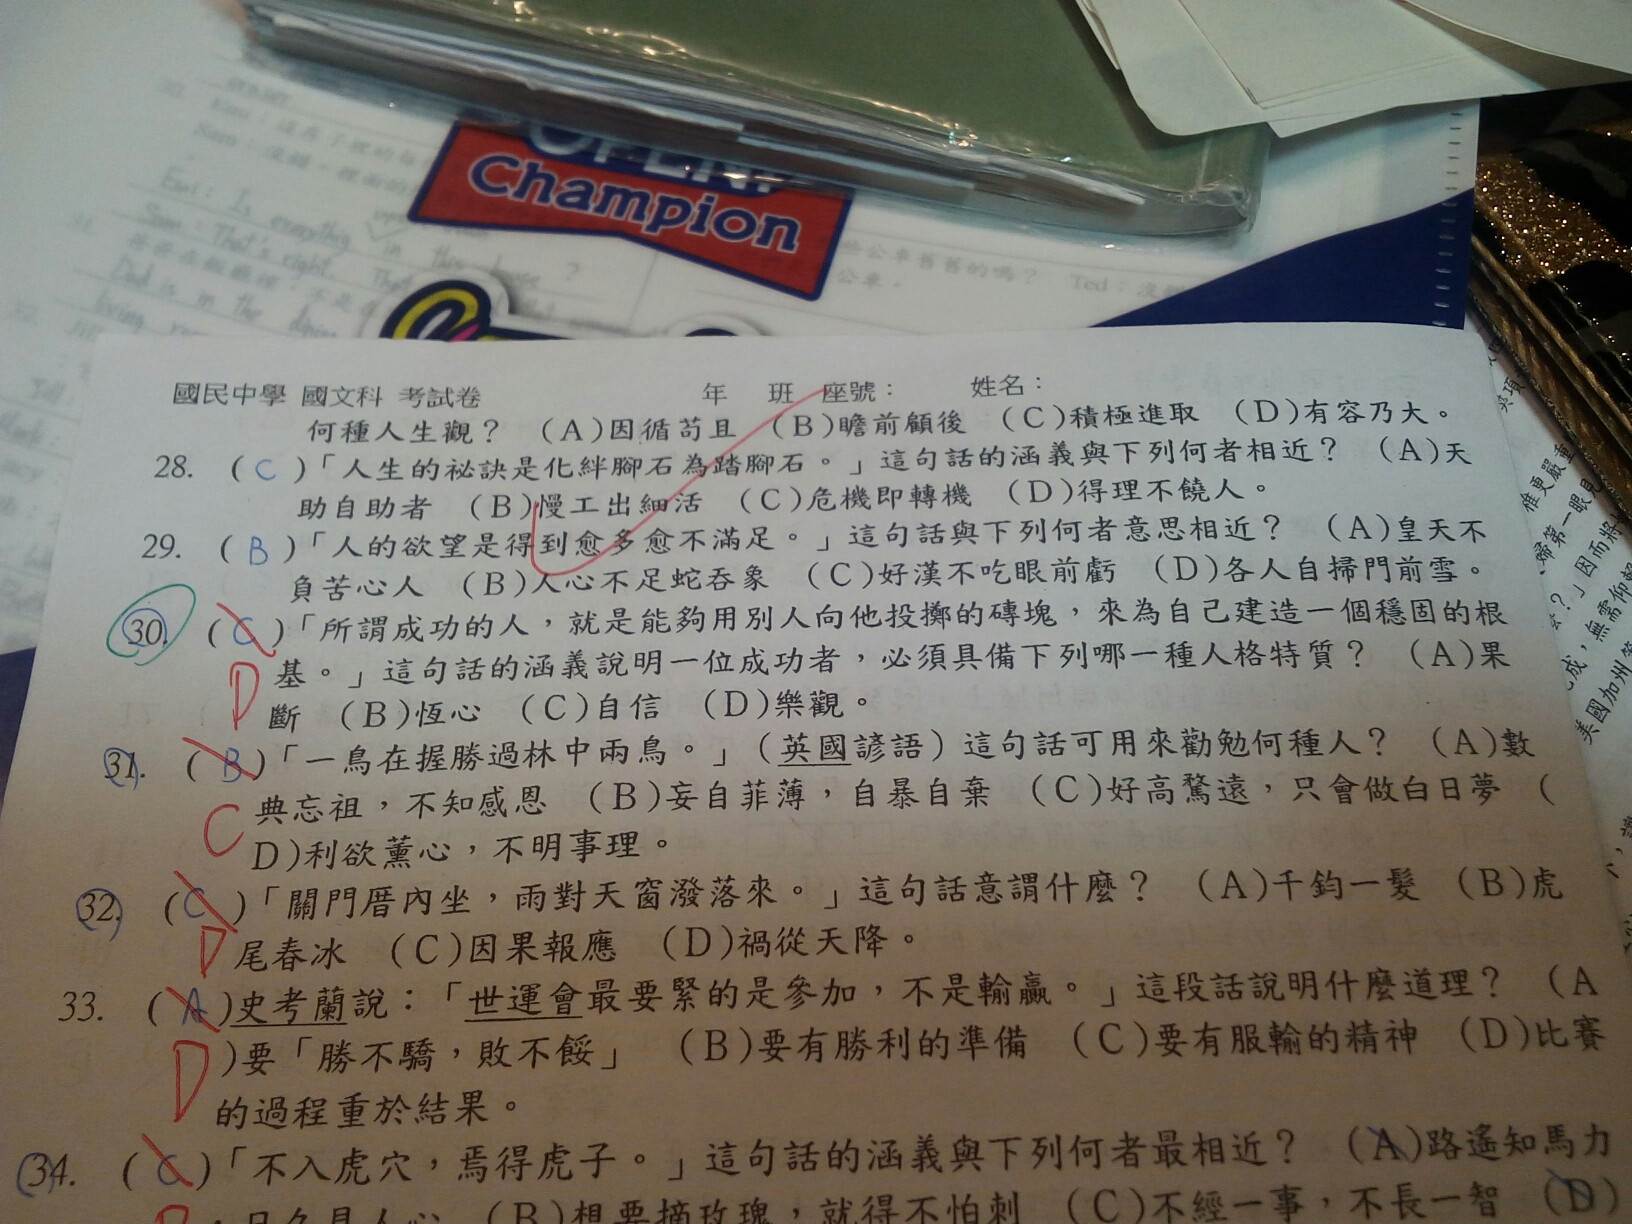 Champion
Evi: Is everything in this house ?
Sam: That's right.
Dad is in the dining
living
公車舊舊的嗎? Ted:
公車。
國民中學 國文科 考試卷 年 班 座號: 姓名:
何種人生觀? (A)因循苟且 (B)瞻前顧後 (C)積極進取 (D)有容乃大。
28. (C)「人生的祕訣是化絆腳石為踏腳石。」這句話的涵義與下列何者相近? (A)天
助自助者 (B)慢工出細活 (C)危機即轉機 (D)得理不饒人。
29. (B)「人的欲望是得到愈多愈不滿足。」這句話與下列何者意思相近? (A)皇天不
負苦心人 (B)人心不足蛇吞象 (C)好漢不吃眼前虧 (D)各人自掃門前雪。
30. (C)「所謂成功的人,就是能夠用別人向他投擲的磚塊,來為自己建造一個穩固的根
D 基。」這句話的涵義說明一位成功者,必須具備下列哪一種人格特質? (A)果
斷 (B)恆心 (C)自信 (D)樂觀。
31. (B)「一鳥在握勝過林中兩鳥。」(英國諺語)這句話可用來勸勉何種人? (A)數
C 典忘祖,不知感恩 (B)妄自菲薄,自暴自棄 (C)好高騖遠,只會做白日夢 (
D)利欲薰心,不明事理。
32. (C)「關門厝內坐,雨對天窗潑落來。」這句話意謂什麼? (A)千鈞一髮 (B)虎
D 尾春冰 (C)因果報應 (D)禍從天降。
33. (A)史考蘭說:「世運會最要緊的是參加,不是輸贏。」這段話說明什麼道理? (A
D )要「勝不驕,敗不餒」 (B)要有勝利的準備 (C)要有服輸的精神 (D)比賽
的過程重於結果。
34. (C)「不入虎穴,焉得虎子。」這句話的涵義與下列何者最相近? (A)路遙知馬力
,日久見人心 (B)想要摘玫瑰,就得不怕刺 (C)不經一事,不長一智 (D)
惟更嚴重
歸第一眼見
」因而將
成,無需仰賴
美國加州